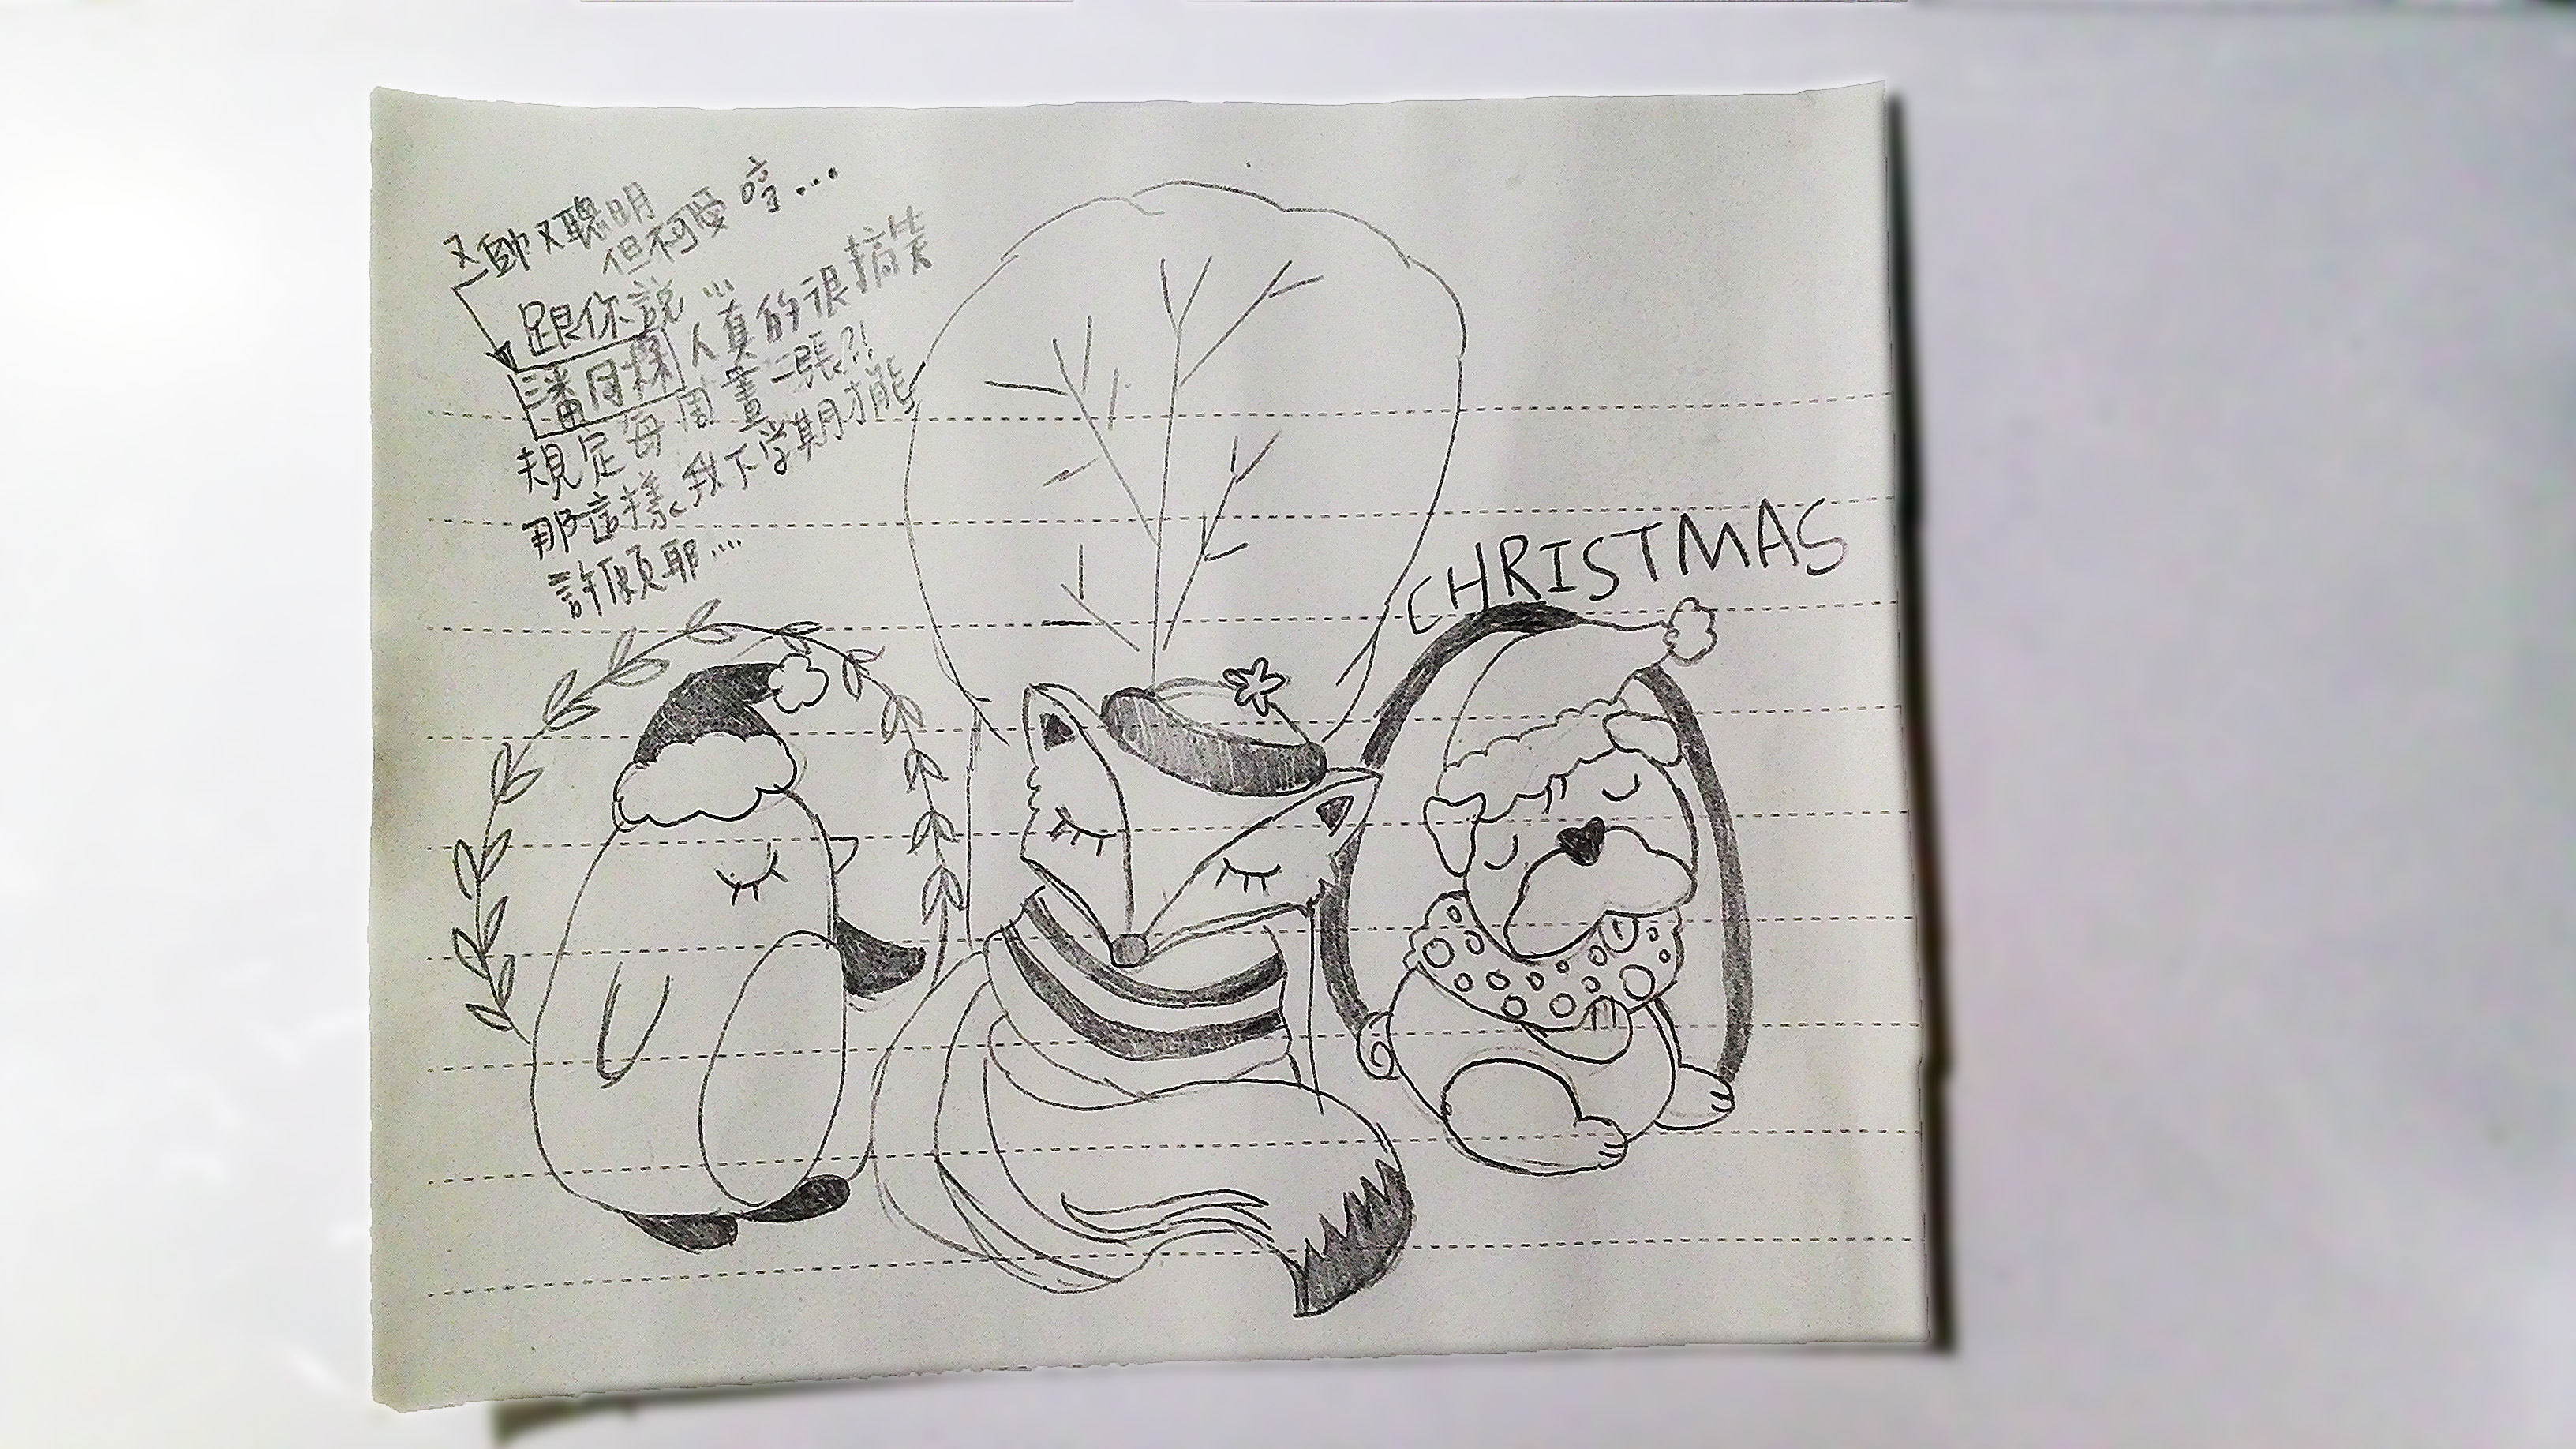 又帥又聰明
但不可愛 哼...
跟你說...
潘月 人真的很搞笑
規定每周畫一張?!
那這樣，我下學期才能
許願耶...
CHRISTMAS